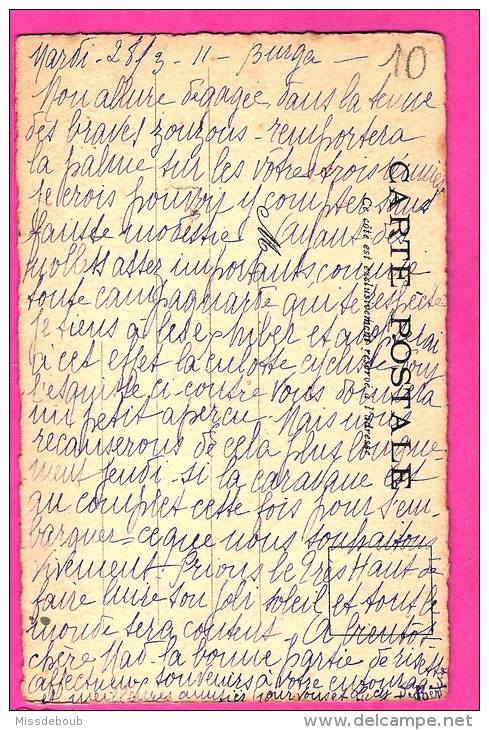 Mardi - 28/3 - 11 - Burga -
10
Mon allure dégagée dans la tenue
des braves zouzous - remportera
la palme sur les votres trois
je crois pouvoir y compter sans
fausse modestie - ayant des
mollets assez importants, comme
toute campagnarde qui se respecte
je tiens à les exhiber et
à cet effet la culotte cycliste
l'esquisse ci-contre vous donnera
un petit aperçu - Mais nous
recauserons de cela plus longue-
ment jeudi - si la caravane est
au complet cette fois pour s'em-
barquer = ce que nous souhaitons
vivement - Prions le Très Haut de
faire luire son joli soleil et tout le
monde sera content - A bientôt
chère Mad - la bonne partie de
affectueux souvenirs à votre entourage
et meilleures amitiés pour vous
CARTE POSTALE
Ce côté est exclusivement réservé à l'adresse
M
Missdeboub
delcampe.net